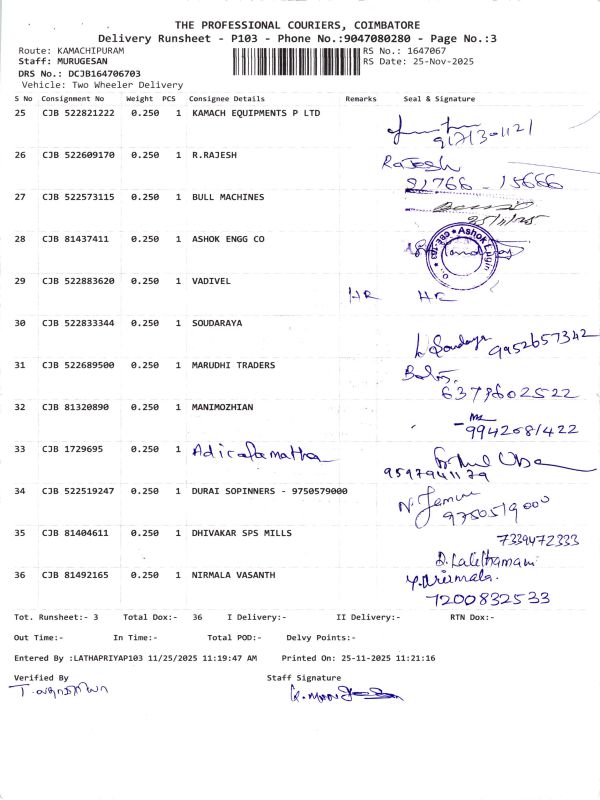 THE PROFESSIONAL COURIERS, COIMBATORE
Delivery Runsheet - P103 - Phone No.:9047080280 - Page No.:3
Route: KAMACHIPURAM RS No.: 1647067
Staff: MURUGESAN RS Date: 25-Nov-2025
DRS No.: DCJB164706703
Vehicle: Two Wheeler Delivery
S No Consignment No Weight PCS Consignee Details Remarks Seal & Signature
25 CJB 522821222 0.250 1 KAMACH EQUIPMENTS P LTD
26 CJB 522609170 0.250 1 R.RAJESH Rajesh
81766 - 15666
27 CJB 522573115 0.250 1 BULL MACHINES
25/11/25
28 CJB 81437411 0.250 1 ASHOK ENGG CO
29 CJB 522883620 0.250 1 VADIVEL HR HR
30 CJB 522833344 0.250 1 SOUDARAYA
9952657342
31 CJB 522689500 0.250 1 MARUDHI TRADERS
6379602522
32 CJB 81320890 0.250 1 MANIMOZHIAN
9942681422
33 CJB 1729695 0.250 1
9597941179
34 CJB 522519247 0.250 1 DURAI SOPINNERS - 9750579000
35 CJB 81404611 0.250 1 DHIVAKAR SPS MILLS 7339472333
36 CJB 81492165 0.250 1 NIRMALA VASANTH
7200832533
Tot. Runsheet:- 3 Total Dox:- 36 I Delivery:- II Delivery:- RTN Dox:-
Out Time:- In Time:- Total POD:- Delvy Points:-
Entered By :LATHAPRIYAP103 11/25/2025 11:19:47 AM Printed On: 25-11-2025 11:21:16
Verified By Staff Signature